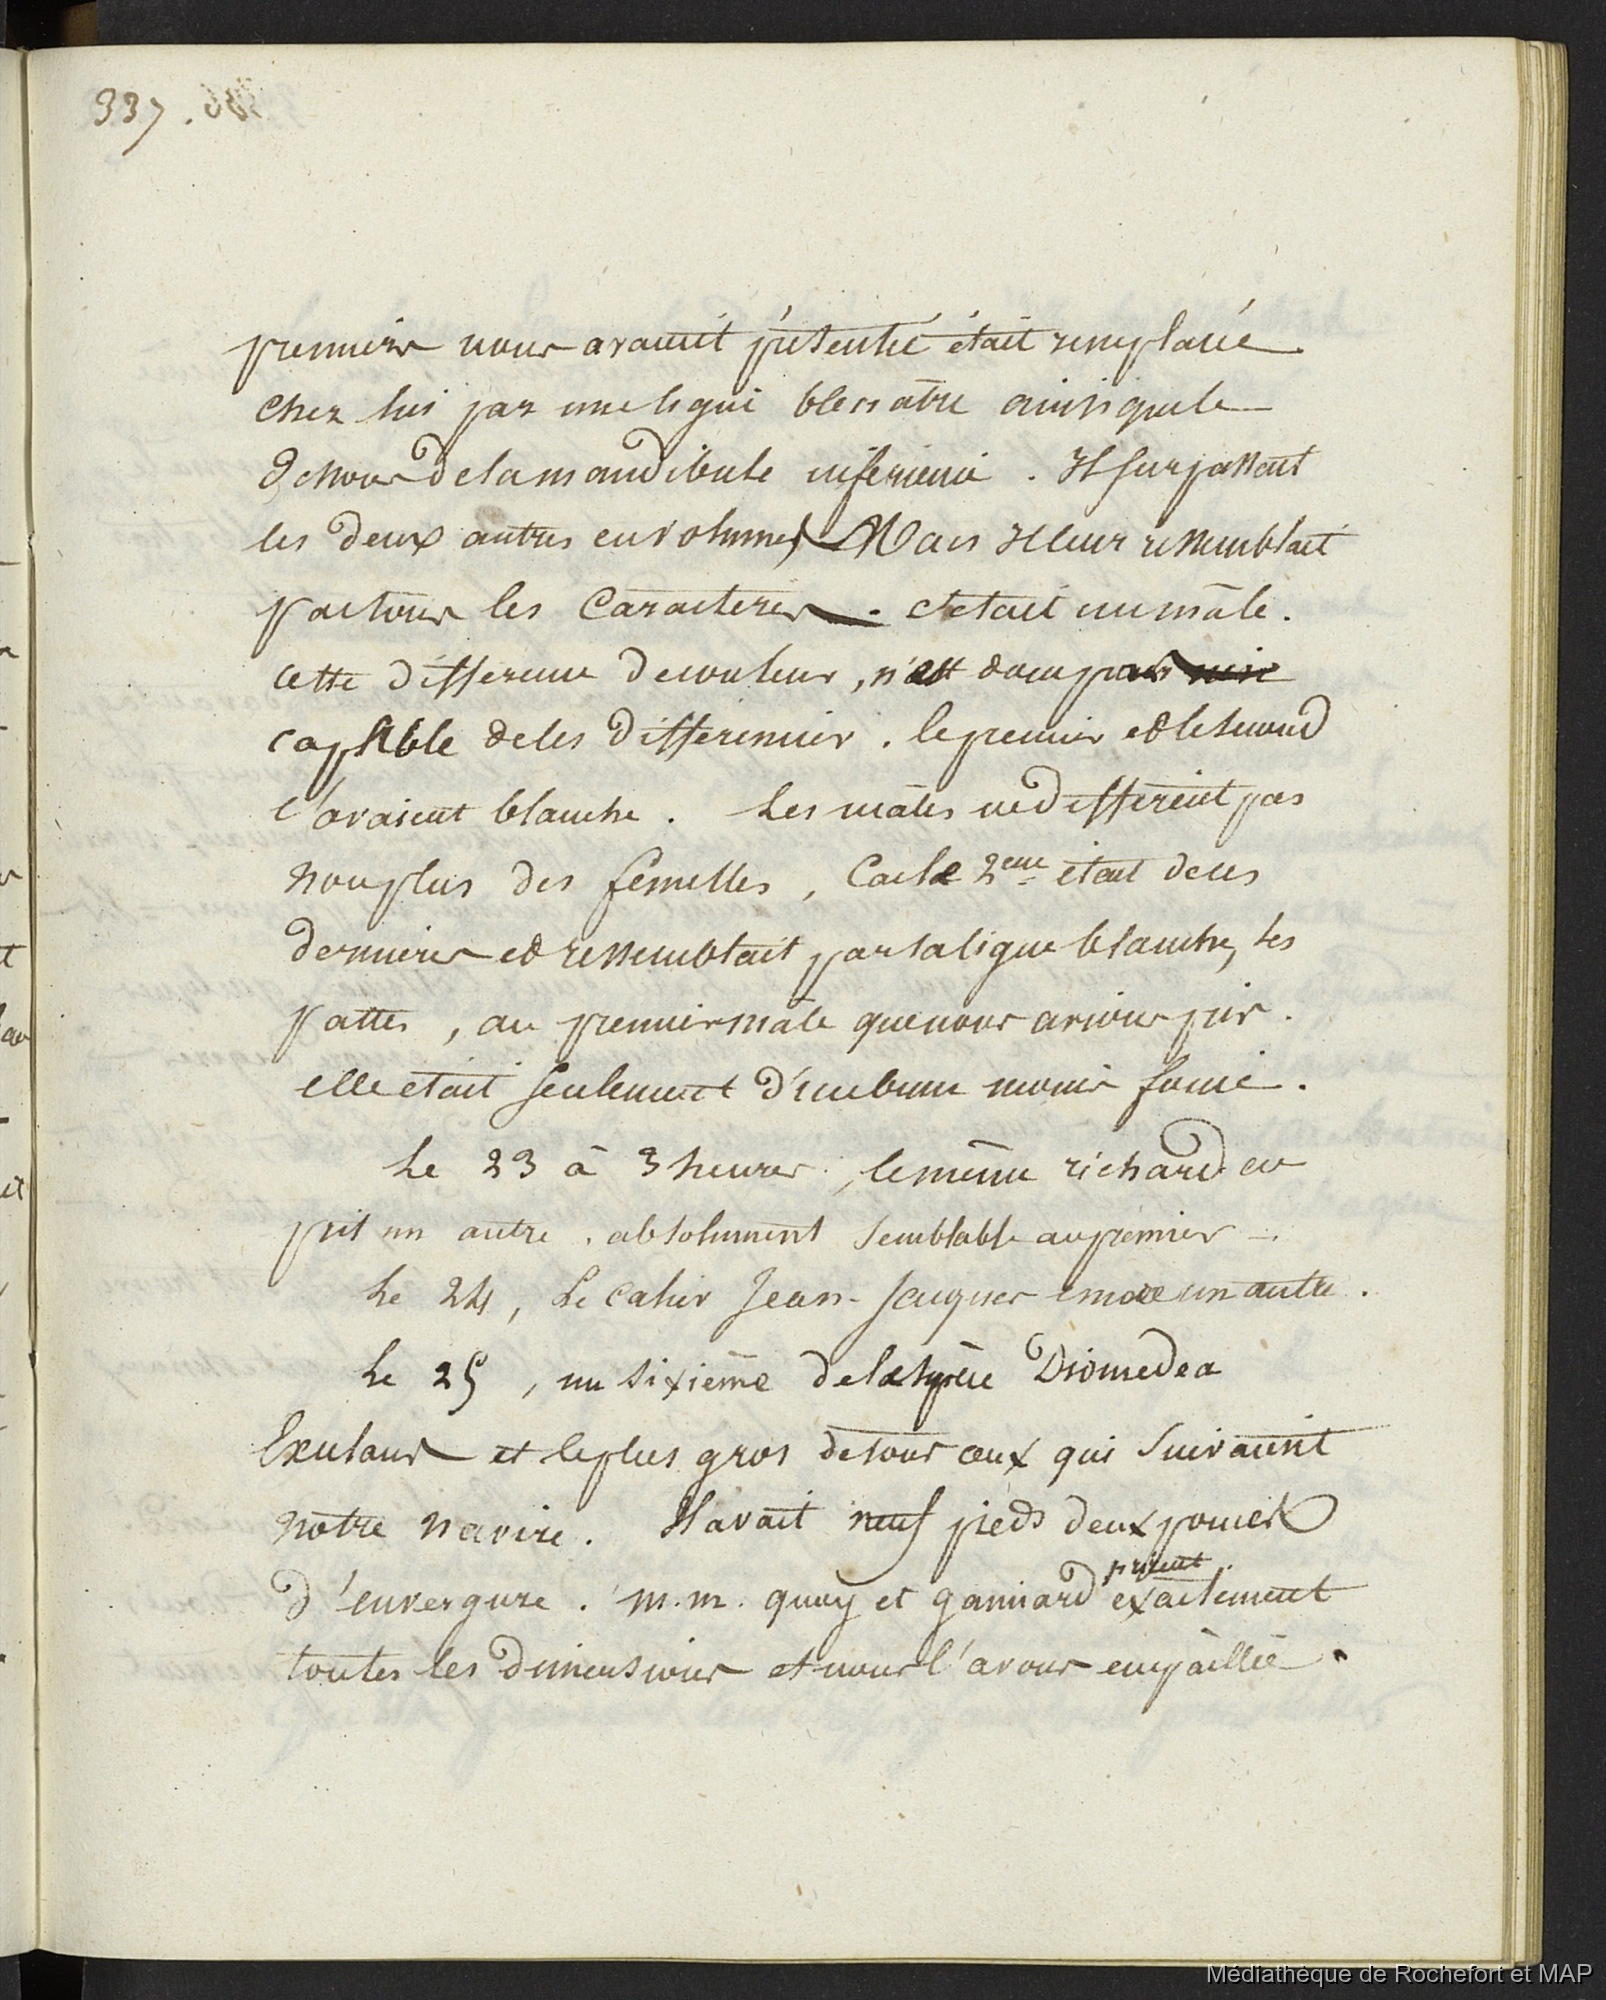 337.
premiers nous avaient présentée était remplacée
chez lui par une ligne bleuatre ainsi que le
dessous de la mandibule inférieure. Il surpassait
les deux autres en volume, Mais Il leur ressemblait
par tous les caracteres. c'etait un mâle.
cette différence de couleur, n'est donc pas
capAble de les différencier. le premier et le second
l'avaient blanche. Les mâles ne different pas
non plus des femelles, Car le 2eme était de ces
dernieres et ressemblait par sa ligne blanche, les
pattes, au premier mâle que nous avions pris.
elle etait seulement d'un brun moins foncé.
Le 23 à 3 heures, le même richard en
prit un autre. absolument semblable au premier.
Le 24, Le calier Jean-Jacques un autre.
Le 25, un sixième de l'espèce Diomedea
Exulans et le plus gros de tous ceux qui suivaient
notre navire. Il avait neuf pieds deux pouces
d'envergure. m.m. quoy et gaimard prirent exactement
toutes les dimensions et nous l'avons empaillée.
Médiathèque de Rochefort et MAP